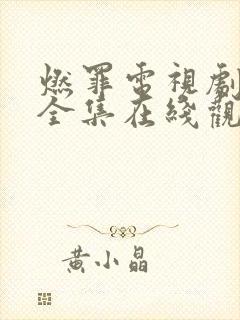 燃罪電視劇
全集在綫觀
黄小晶